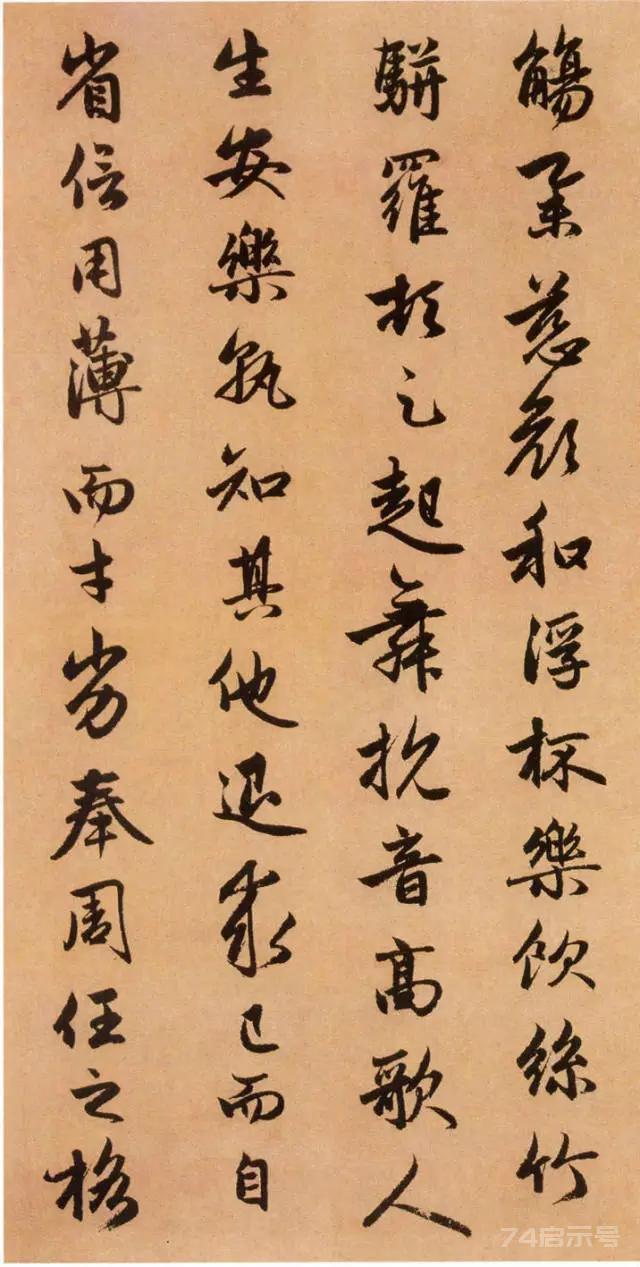 觴舉慈顏和浮杯樂飲絲竹
騈羅頓足起舞抗音高歌人
生安樂孰知其他退求己而自
省信用薄而才劣奉周任之格
74启示号